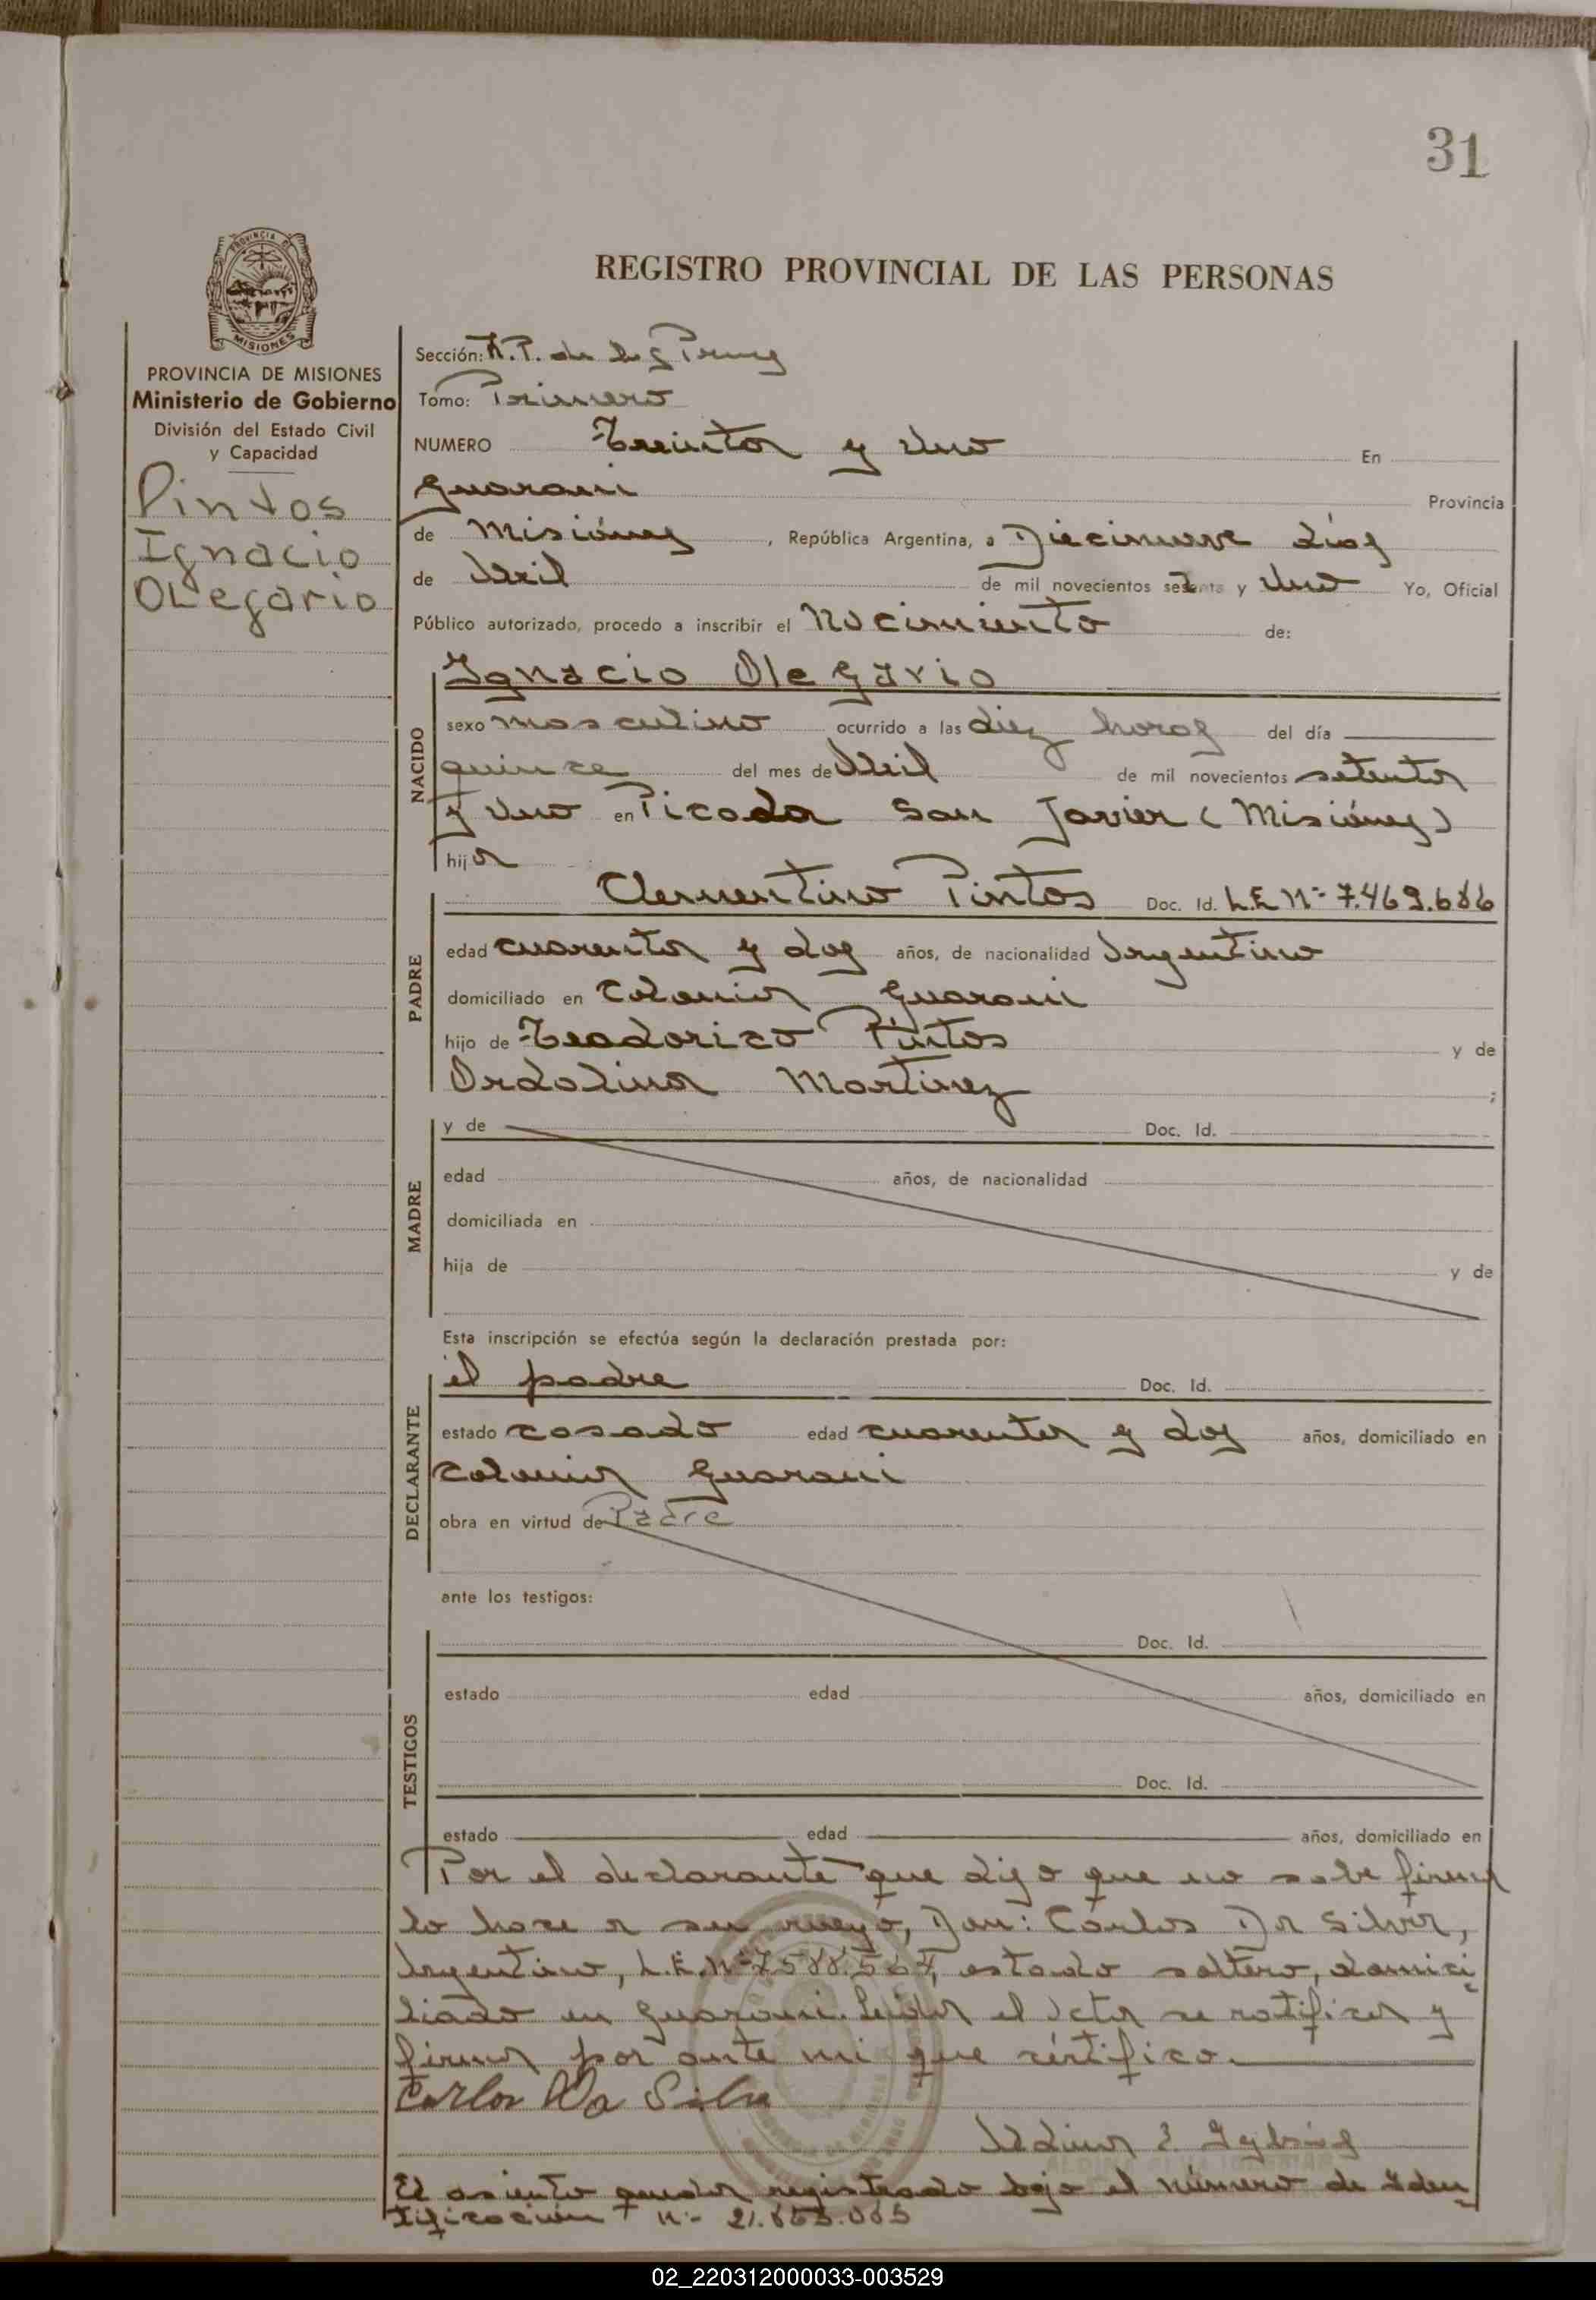 31
PROVINCIA DE
MISIONES
REGISTRO PROVINCIAL DE LAS PERSONAS
PROVINCIA DE MISIONES
Ministerio de Gobierno
División del Estado Civil
y Capacidad
Pintos
Ignacio
Olegario
Sección: R.P. de las
Tomo: Primero
NUMERO Treinta y Uno En
Guarani Provincia
de Misiónes, República Argentina, a Diecinueve días
de Abril de mil novecientos setenta y Uno Yo, Oficial
Público autorizado, procedo a inscribir el Nacimiento de:
NACIDO
Ignacio Olegario
sexo masculino ocurrido a las diez horas del día
quince del mes de Abril de mil novecientos setenta
y Uno en Picada San Javier (Misiónes)
hijo
PADRE
Clementino Pintos Doc. Id. L.E Nº 7.469.686
edad cuarenta y dos años, de nacionalidad Argentino
domiciliado en Colonia Guarani
hijo de Teodorico Pintos y de
Ordolina Martinez ;
MADRE
y de Doc. Id.
edad años, de nacionalidad
domiciliada en
hija de y de
Esta inscripción se efectúa según la declaración prestada por:
DECLARANTE
el padre Doc. Id.
estado casado edad cuarenta y dos años, domiciliado en
Colonia Guarani
obra en virtud de Padre
ante los testigos:
TESTIGOS
Doc. Id.
estado edad años, domiciliado en
Doc. Id.
estado edad años, domiciliado en
Por el declarante que dijo que no sabe firma
lo hace a su ruego, Don: Carlos Da Silva,
Argentino, L.E. Nº estado soltero, domici
liado en Guarani. Leida el Acta se ratifica y
firma por ante mi que cértifico.
Carlos Da Silva
El asiento queda registrado bajo el número de Iden
tificación Nº
02_220312000033-003529